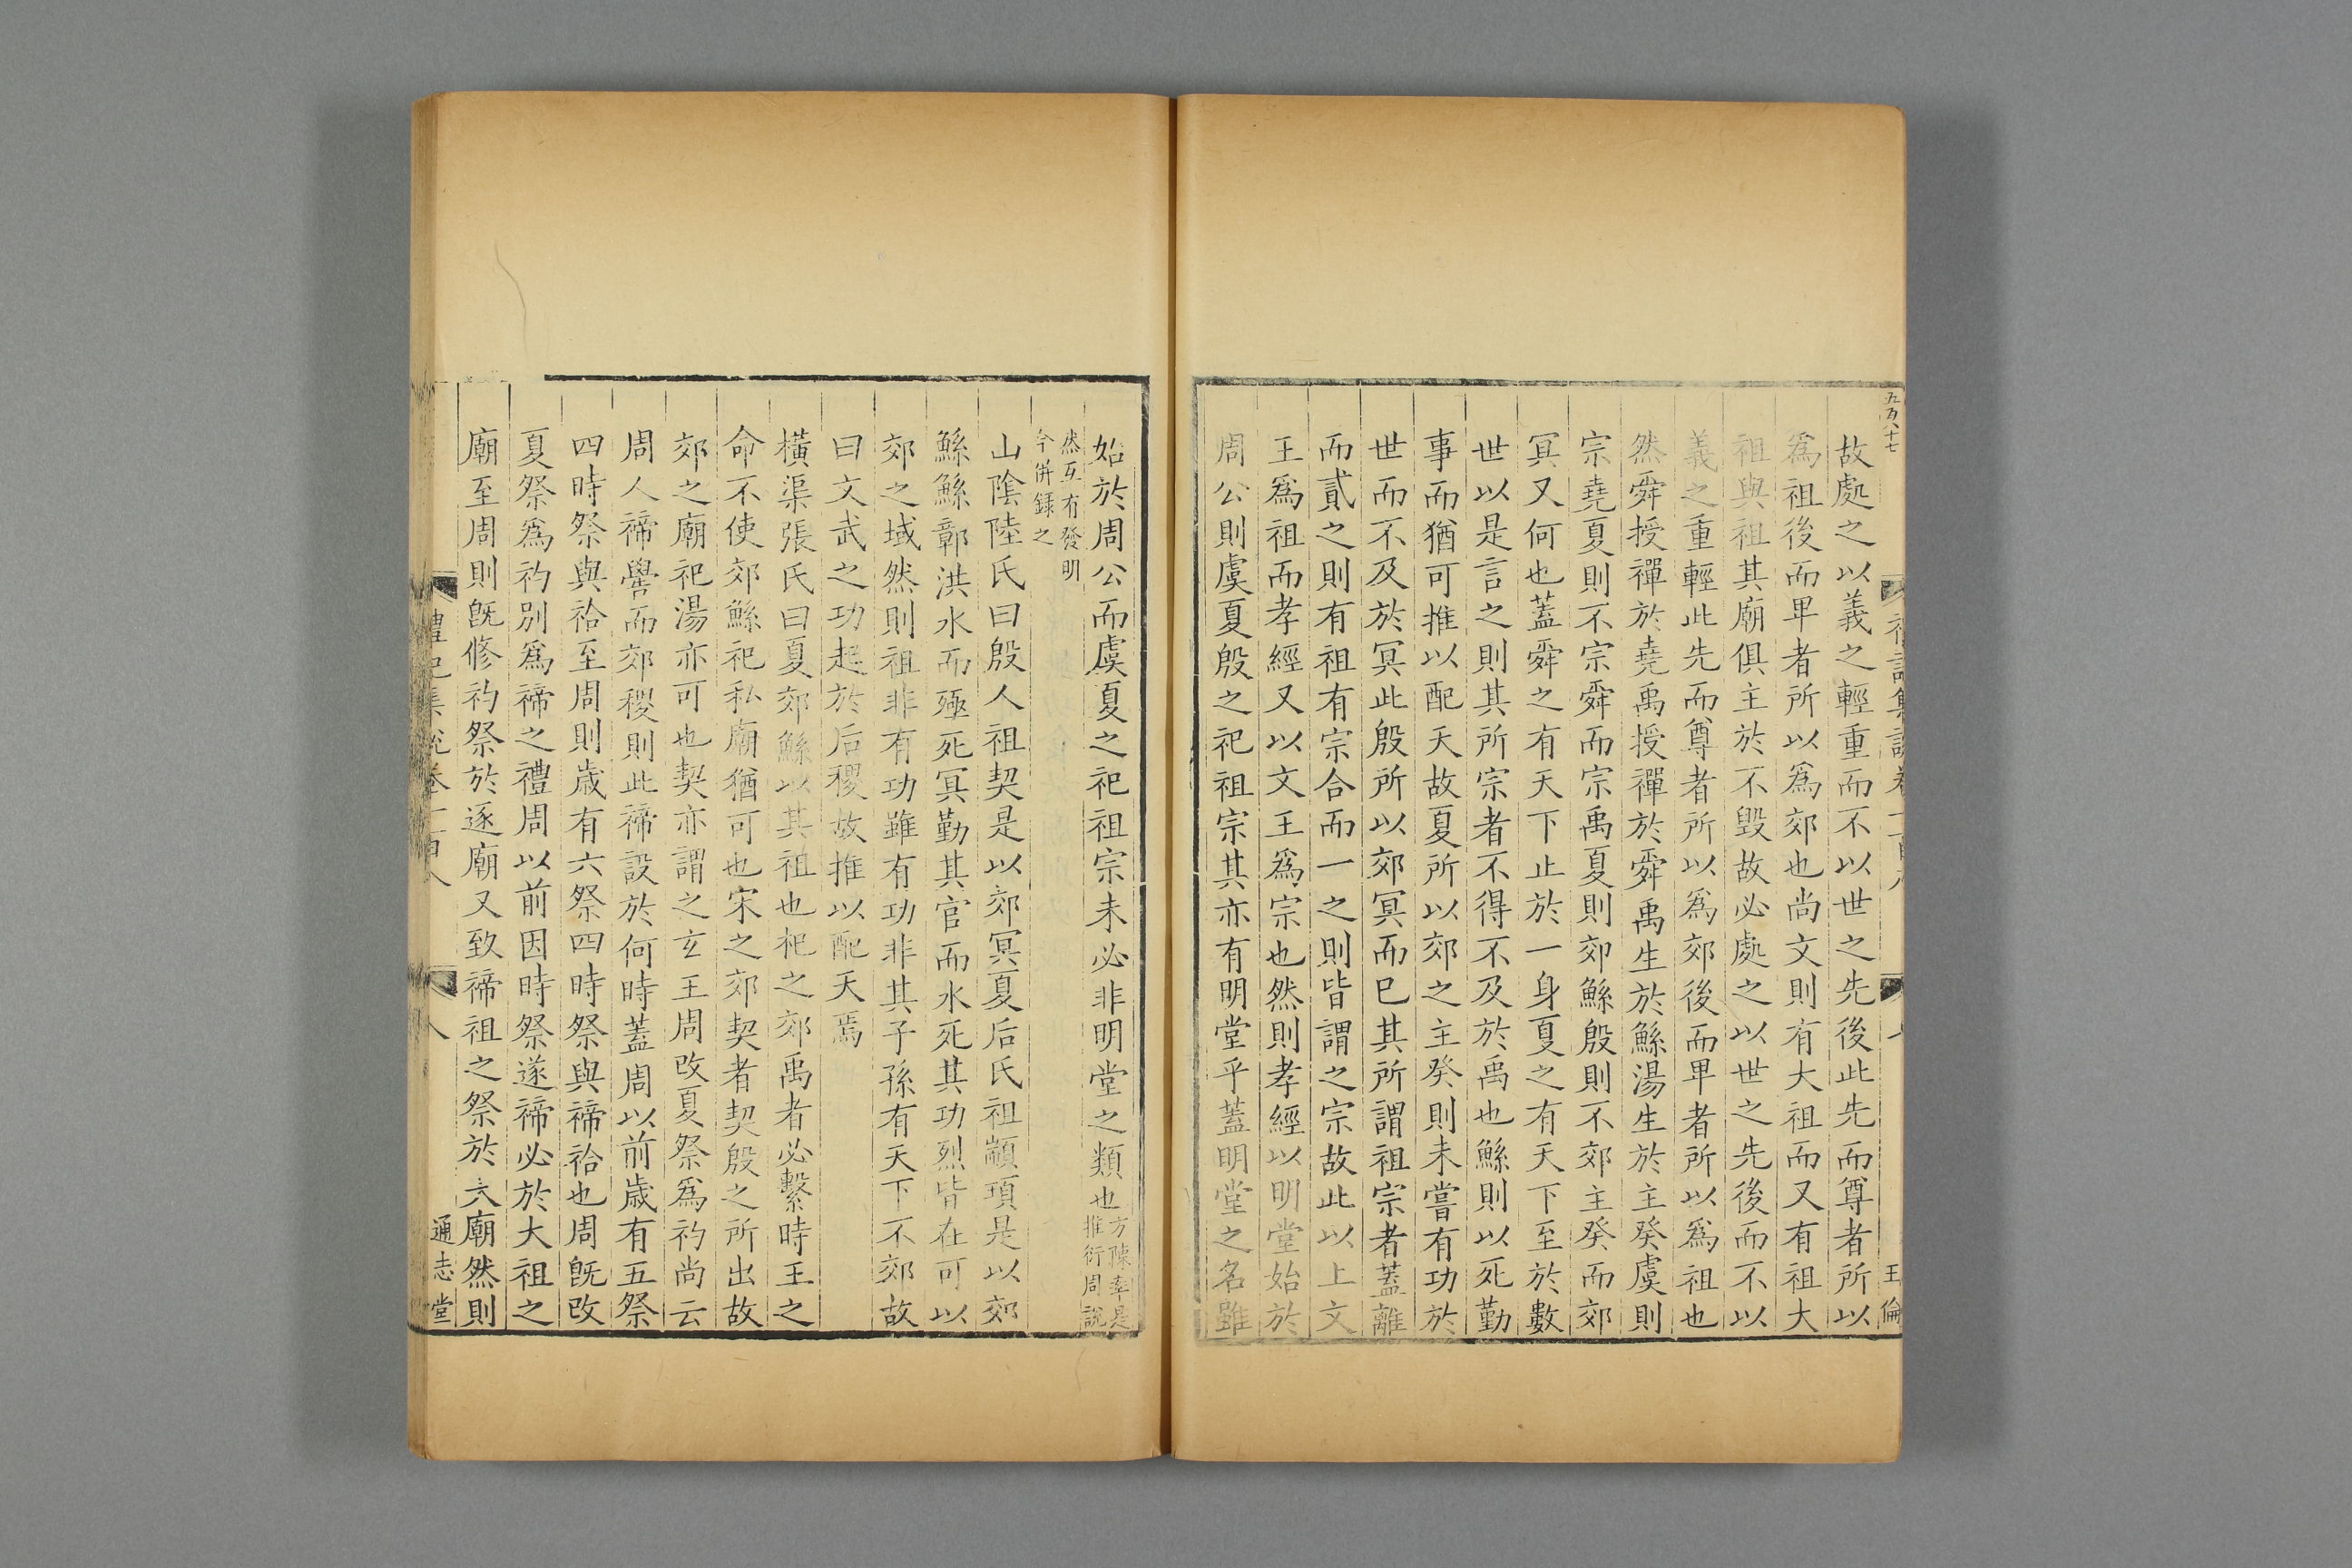 五百八十七
禮記集說卷一百八
七
王倫
故處之以義之輕重而不以世之先後此先而尊者所以
爲祖後而卑者所以爲郊也尚文則有大祖而又有祖大
祖與祖其廟俱主於不毀故必處之以世之先後而不以
義之重輕此先而尊者所以爲郊後而卑者所以爲祖也
然舜授禪於堯禹授禪於舜禹生於鯀湯生於主癸虞則
宗堯夏則不宗舜而宗禹夏則郊鯀殷則不郊主癸而郊
冥又何也蓋舜之有天下止於一身夏之有天下至於數
世以是言之則其所宗者不得不及於禹也鯀則以死勤
事而猶可推以配天故夏所以郊之主癸則未嘗有功於
世而不及於冥此殷所以郊冥而巳其所謂祖宗者蓋離
而貳之則有祖有宗合而一之則皆謂之宗故此以上文
王爲祖而孝經又以文王爲宗也然則孝經以明堂始於
周公則虞夏殷之祀祖宗其亦有明堂乎蓋明堂之名雖
始於周公而虞夏之祀祖宗未必非明堂之類也方陳率是
推衍周說
然互有發明
今併録之
山陰陸氏曰殷人祖契是以郊冥夏后氏祖顓頊是以郊
鯀鯀鄣洪水而殛死冥勤其官而水死其功烈皆在可以
郊之域然則祖非有功雖有功非其子孫有天下不郊故
曰文武之功起於后稷故推以配天焉
橫渠張氏曰夏郊鯀以其祖也杞之郊禹者必繫時王之
命不使郊鯀祀私廟猶可也宋之郊契者契殷之所出故
郊之廟祀湯亦可也契亦謂之玄王周改夏祭爲礿尚云
周人禘嚳而郊稷則此禘設於何時蓋周以前歲有五祭
四時祭與祫至周則歲有六祭四時祭與禘祫也周旣改
夏祭爲礿別爲禘之禮周以前因時祭遂禘必於大祖之
廟至周則旣修礿祭於逐廟又致禘祖之祭於大廟然則
禮記集說卷一百八
八
通志堂